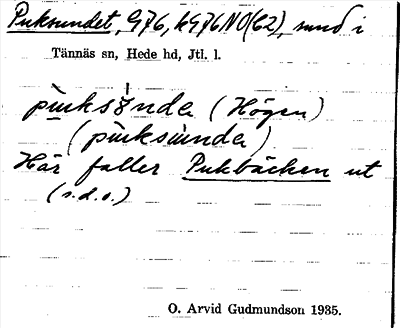 Puksundet, G76, kG76NO(C2), sund i
Tännäs sn, Hede hd, Jtl. l.
pùksʒ́nda (Högen)
(pùksùnda)
Här faller Pukbäcken ut
(s.d.o.)
O. Arvid Gudmundson 1935.